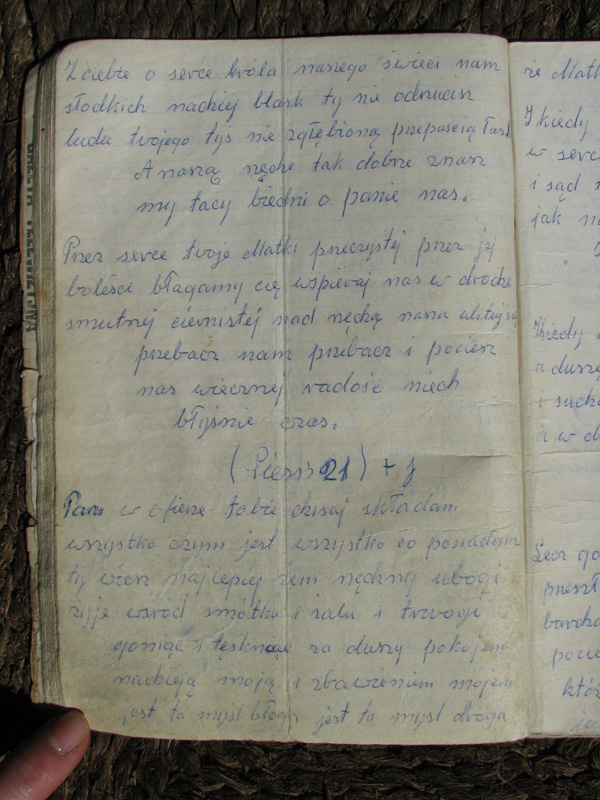 Z ciebie o serce króla naszego świeci nam
słodkich nadziej blask ty nie odrzucisz
ludu twojego tyś nie zgłębioną przepaścią łask
A naszą nędze tak dobrze znasz
my tacy biedni o panie nas.
Przez serce twoje Matki przeczystej przez jej
boleści błagamy cię wspieraj nas w drodze
smutnej ciernistej nad nędzą nasza ulituj się
przebacz nam przebacz i pociesz
nas wiecznej radość niech
błyśnie czas.
(Pieśń 21) + f
Panu w ofierze tobie dzisaj składam
wszystko czym jest wszystko co posiadam
ty wiesz najlepiej żem nędzny ubogi
żyje wśród smótku i żalu i trwogi
goniąc i tęskniąc za duszy pokojem
nadzieją moją i zbawieniem mojem
jest ta myśl błoga jest ta mysl droga
że Matk
I kiedy
w serc
i sąd
jak na
Kiedy
a duszę
i such
a w d
Lecz go
przesz
bardzo
pocie
któ